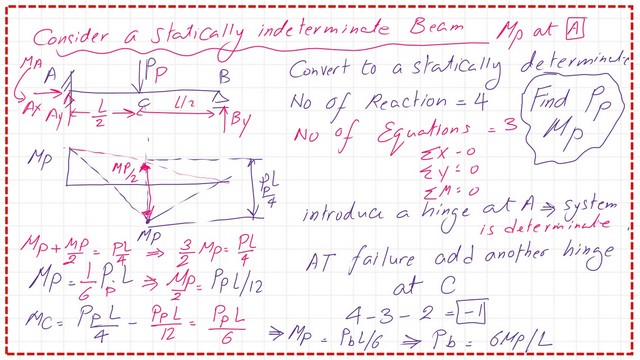 Consider a statically indeterminate Beam Mp at A
MA
A
Pp
B
Ax
Ay
L/2
C
L/2
By
Convert to a statically determinate
No of Reaction = 4
No of Equations = 3
ΣX = 0
ΣY = 0
ΣM = 0
Find Pp
Mp
Mp
Mp/2
PpL/4
Mp
introduce a hinge at A ⇒ system
is determinate
AT failure add another hinge
at C
4-3-2 = -1
Mp + Mp/2 = PL/4 ⇒ 3/2 Mp = PL/4
Mp = 1/6 PpL ⇒ Mp/2 = PpL/12
Mc = PpL/4 - PpL/12 = PpL/6
⇒ Mp = PbL/6 ⇒ Pb = 6Mp/L